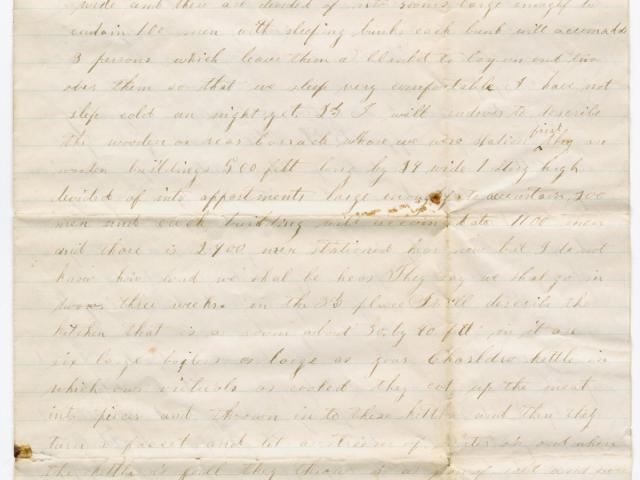 wide and these are divided of into rooms large enough to
contain 100 men with sleeping bunks each bunk will accomadate
3 persons which leave them a blanket to lay on and two
over them so that we sleep very comfortable I have not
slep cold an night yet. 2d I will endevor to describe
the wooden or rear barrack whare we were station first They are
wooden buildings 500 feet long by 24 wide 1 story high
divided of into appartments large enough to accuntain 100
men and each building will accom date 1100 men
and there is 2400 men stationed hear now but I do not
know how long we shal be hear They say we shal go in
two or three weeks. in the 3d place I will describe the
kitchen that is a room about 30 by 40 ftt in it are
six large boilers as large as your kettle in
which our victuals as cooked they cut up the meat
into pieces and thrown in to these kettles and then they
turn a facset and let a stream of water in and when
the kettle is full they throw in a